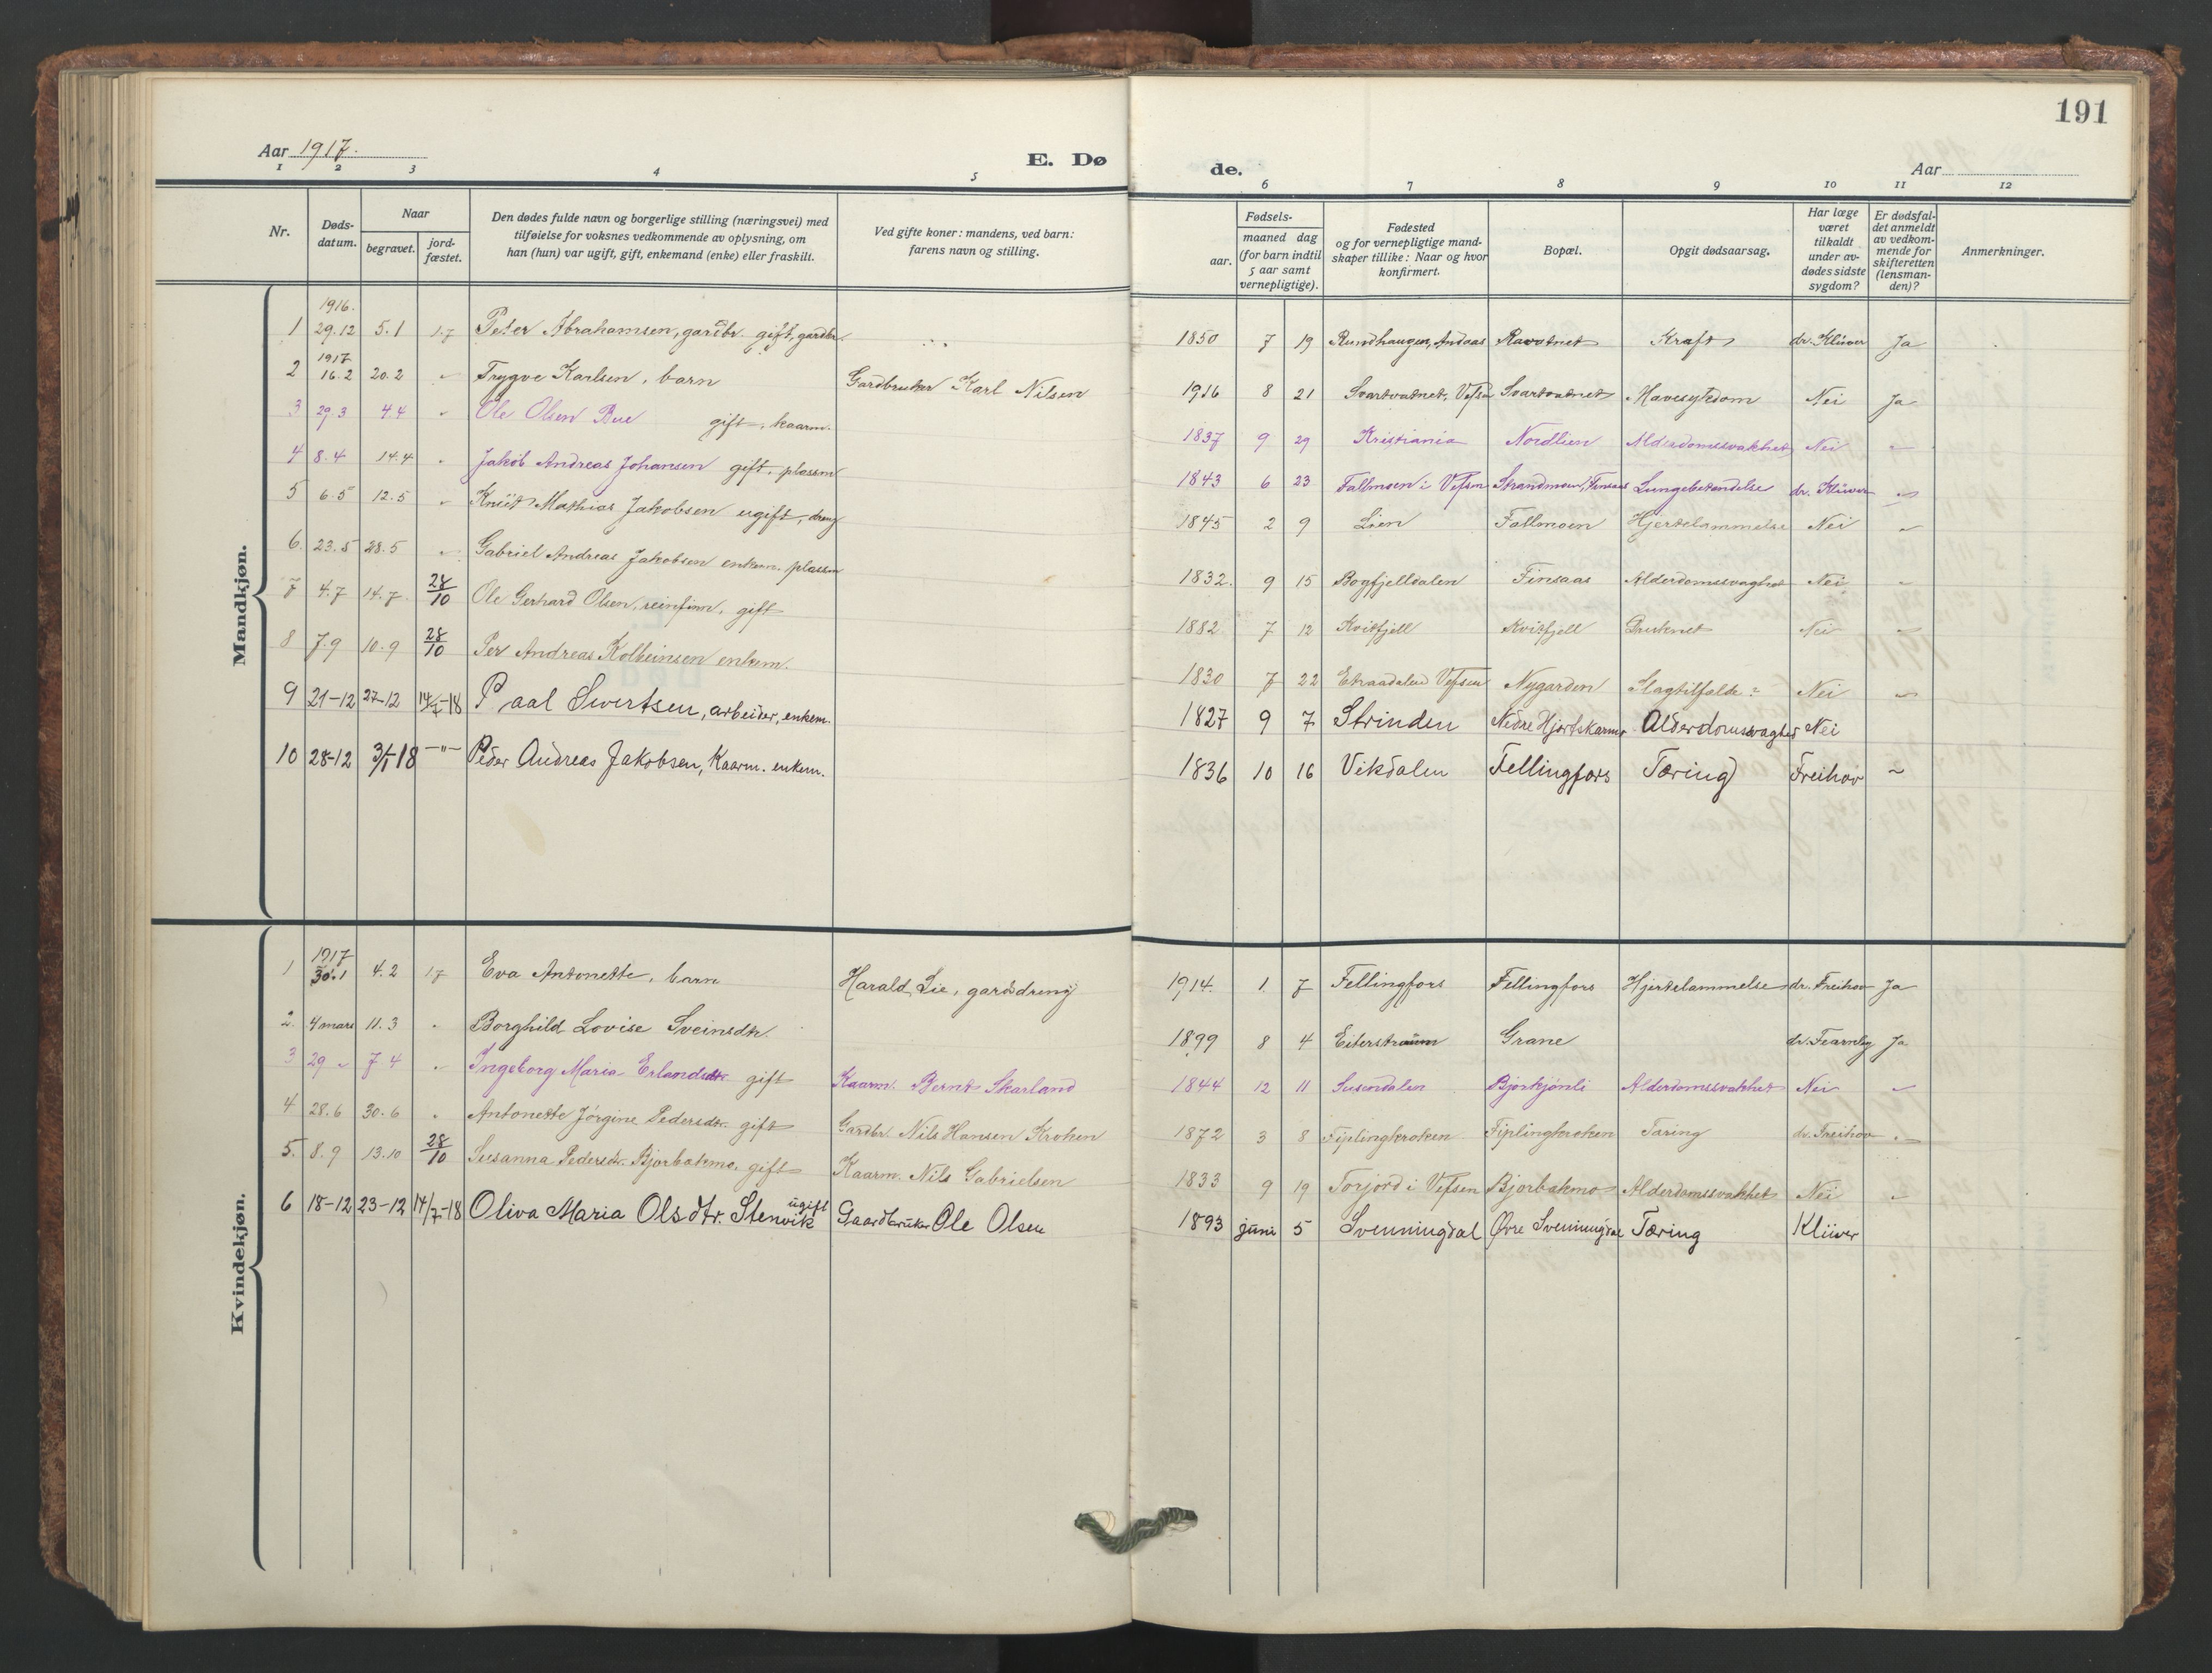 191
Aar 1917.
E. Døde.
Aar
1 2 3 4 5 6 7 8 9 10 11 12
Nr.
Døds-datum.
Naar
begravet.
jord-fæstet.
Den dødes fulde navn og borgerlige stilling (næringsvei) med
tilføielse for voksnes vedkommende av oplysning, om
han (hun) var ugift, gift, enkemand (enke) eller fraskilt.
Ved gifte koner: mandens, ved barn:
farens navn og stilling.
Fødsels-
aar.
maaned dag
(for barn indtil
5 aar samt
vernepligtige).
Fødested
og for vernepligtige mand-
skaper tillike: Naar og hvor
konfirmert.
Bopæl.
Opgit dødsaarsag.
Har læge
været
tilkaldt
under av-
dødes sidste
sygdom?
Er dødsfal-
det anmeldt
av vedkom-
mende for
skifteretten
(lensman-
den)?
Anmerkninger.
Mandkjøn.
1916.
1 29.12 5.1 1.7 Peter Abrahamsen, gardbr. gift, gardbr. 1850 7 19 Rundhaugen, Ravatnet Kraft dr. Klüver Ja
1917
2 16.2 20.2 " Trygve Karlsen, barn Gardbruker Karl Nilsen 1916 8 21 Svartvatnet, Vefsn Svartvatnet Mavesykdom Nei Ja
3 29.3 4.4 " Ole Olsen Bue gift, kaarm. 1837 9 29 Kristiania Nordlien Alderdomssvakhet Nei "
4 8.4 14.4 " Jakob Andreas Johansen gift, plassm 1843 6 23 Fallmoen i Vefsn Strandmoen, Finsaas Lungebetendelse dr. Klüver "
5 6.5 12.5 " Knut Mathias Jakobsen ugift, dreng 1845 2 9 Lien Fallmoen Hjertelammelse Nei "
6. 23.5 28.5 " Gabriel Andreas Jakobsen enkem. plassm 1832. 9 15 Bogfjelldalen Finsaas Alderdomssvaghet Nei "
7 4.7 14.7. 28/10 Ole Gerhard Olsen, reinfinn, gift 1882 7 12 Kvitfjell Kvitfjell Druknet Nei "
8 7.9 10.9 28/10 Per Andreas Kolbeinsen enkem. 1830 7 22 Vefsen Nygarden Slagtilfælde Nei "
9 21-12 27-12 14/7-18 Paal Sivertsen, arbeider, enkem. 1827 9 7 Strinden Nedre Hjortskarmo Alderdomssvaghed Nei
10 28-12 3/1 18 -"- Peder Andreas Jakobsen, Kaarm. enkem. 1836 10 16 Vikdalen Fellingfors Tæring Freihow ~
Kvindekjøn.
1917
1 30.1 4.2 17 Eva Antonette, barn Harald Lie, gardsdreng 1914. 1. 7 Fellingfors Fellingfors Hjertelammelse dr. Freihow Ja
2. 4 mars 11.3 " Borghild Lovise Sveinsdtr. 1899 8 4 Eiterstraum Grane dr. Fearnley Ja
3 29 " 7 4 " Ingeborg Maria Erlandsdtr gift Kaarm. Bernt Skarland 1844 12 11 Susendalen Bjorkjønli Alderdomssvakhet Nei "
4 28.6 30.6 " Antonette Jørgine Pedersdtr. gift Gardbr. Nils Hansen Kroken 1872 3 8 Fiplingkroken Fiplingkroken Tæring dr. Freihow "
5. 8.9 13.10 28/10 Susanna Pedersdtr. Bjorbakmo, gift Kaarm. Nils Gabrielsen 1833 9 19 Torjord i Vefsen Bjorbakmo Alderdomssvakhet Nei "
6 18-12 23-12 14/7-18 Oliva Maria Olsdtr. Stenvik ugift Gaardbruker Ole Olsen 1893 juni 5 Svenningdal Øvre Svenningdal Tæring Klüver